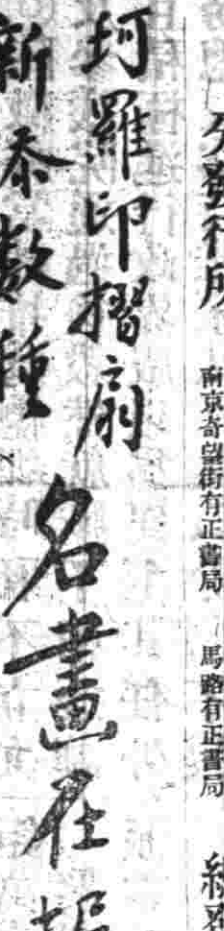 分發行所 南京奇望街有正書局 馬路有正書局
珂羅印摺扇名畫在
新添數種